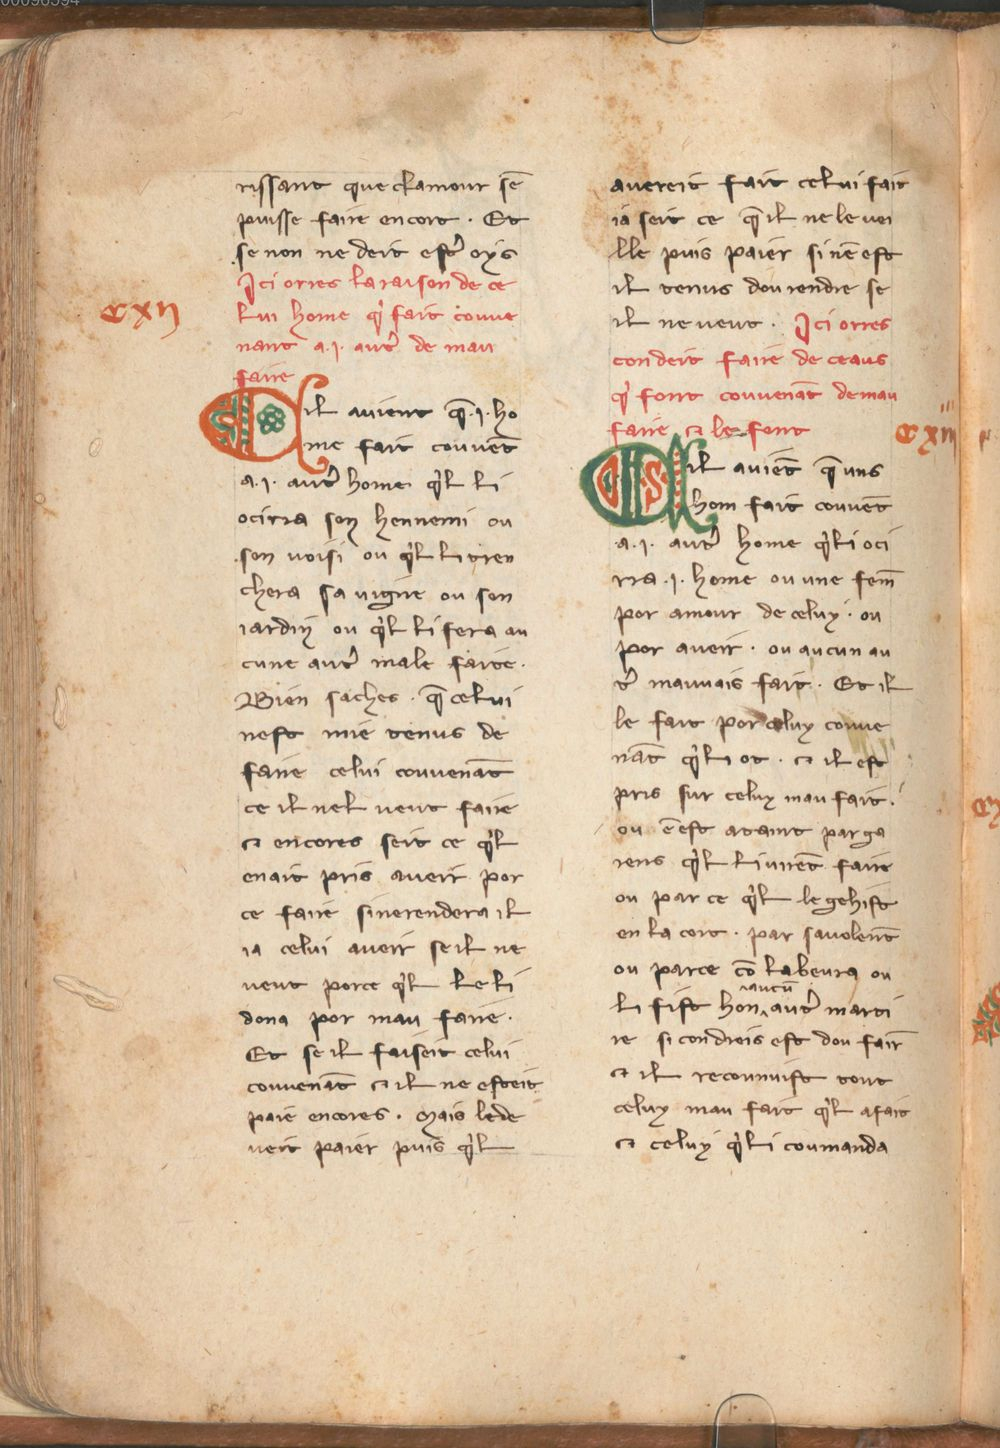 00096594
rissant que clamour se͞
puisse faire encort · Et
se non ne deit est̾ oys
Ici orres la raison de ce
lui home q̾ fait couue
nant a ·i· aut̾ de mau
faire
cxii
SIl auient q͞ ·i· ho
me fait couue͞t
a ·i· aut̾ home q̾l li
ocirra son hennemi ou
son uoisi ou q̾l li tren
chera sa uigne ou son
iardin ou q̾l li fera au
cune aut̾ male faite ·
Bien saches · q͞ celui
nest mie tenus de
faire celui couuena͞t
ce il nel ueut faire
⁊ encores seit ce q̾l
enait pris aueir por
ce faire si nerendera il
ia celui aueir se il ne
ueut por ce q̾l le li
dona por mau faire ·
Et se il faiseit celui
couuena͞t ⁊ il ne esteit
paie encores · Mais le de
ueit paier puis q̾l
auereit fait celui fait
ia seit ce q͞ il ne le uei
lle puis paier si ne͞ est
il tenus dou rendre se
il ne ueut · Ici orres
con deit faire de ceaus
q̾ font couuena͞t de mau
faire ⁊ le font
cxiii
SIl auie͞t q͞ uns
hom fait couue͞t
a ·i· aut̾ home q̾li oci
rra ·i· home ou une fem͞
por amour de celuy · ou
por aueir · ou aucun au
t̾ mauuais fait · Et il
le fait por celuy couue
na͞t q̾li ot · ⁊ il est
pris sur celuy mau fait ·
ou e͞ est ataint par ga
rens q̾l li uire͞t faire
ou par ce q̾l le gehist
en la cort · par sa uole͞te
ou par ce co͞ labeura ou
li fist hon aucu͞ aut̾ marti
re si con dreis est dou fair̾
⁊ il reconnuist tout
celuy mau fait q̾l a fait
⁊ celuy q̾li coumanda